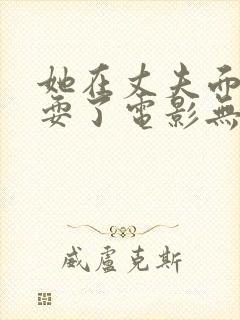 她在丈夫而
耍了電影無
威盧克斯